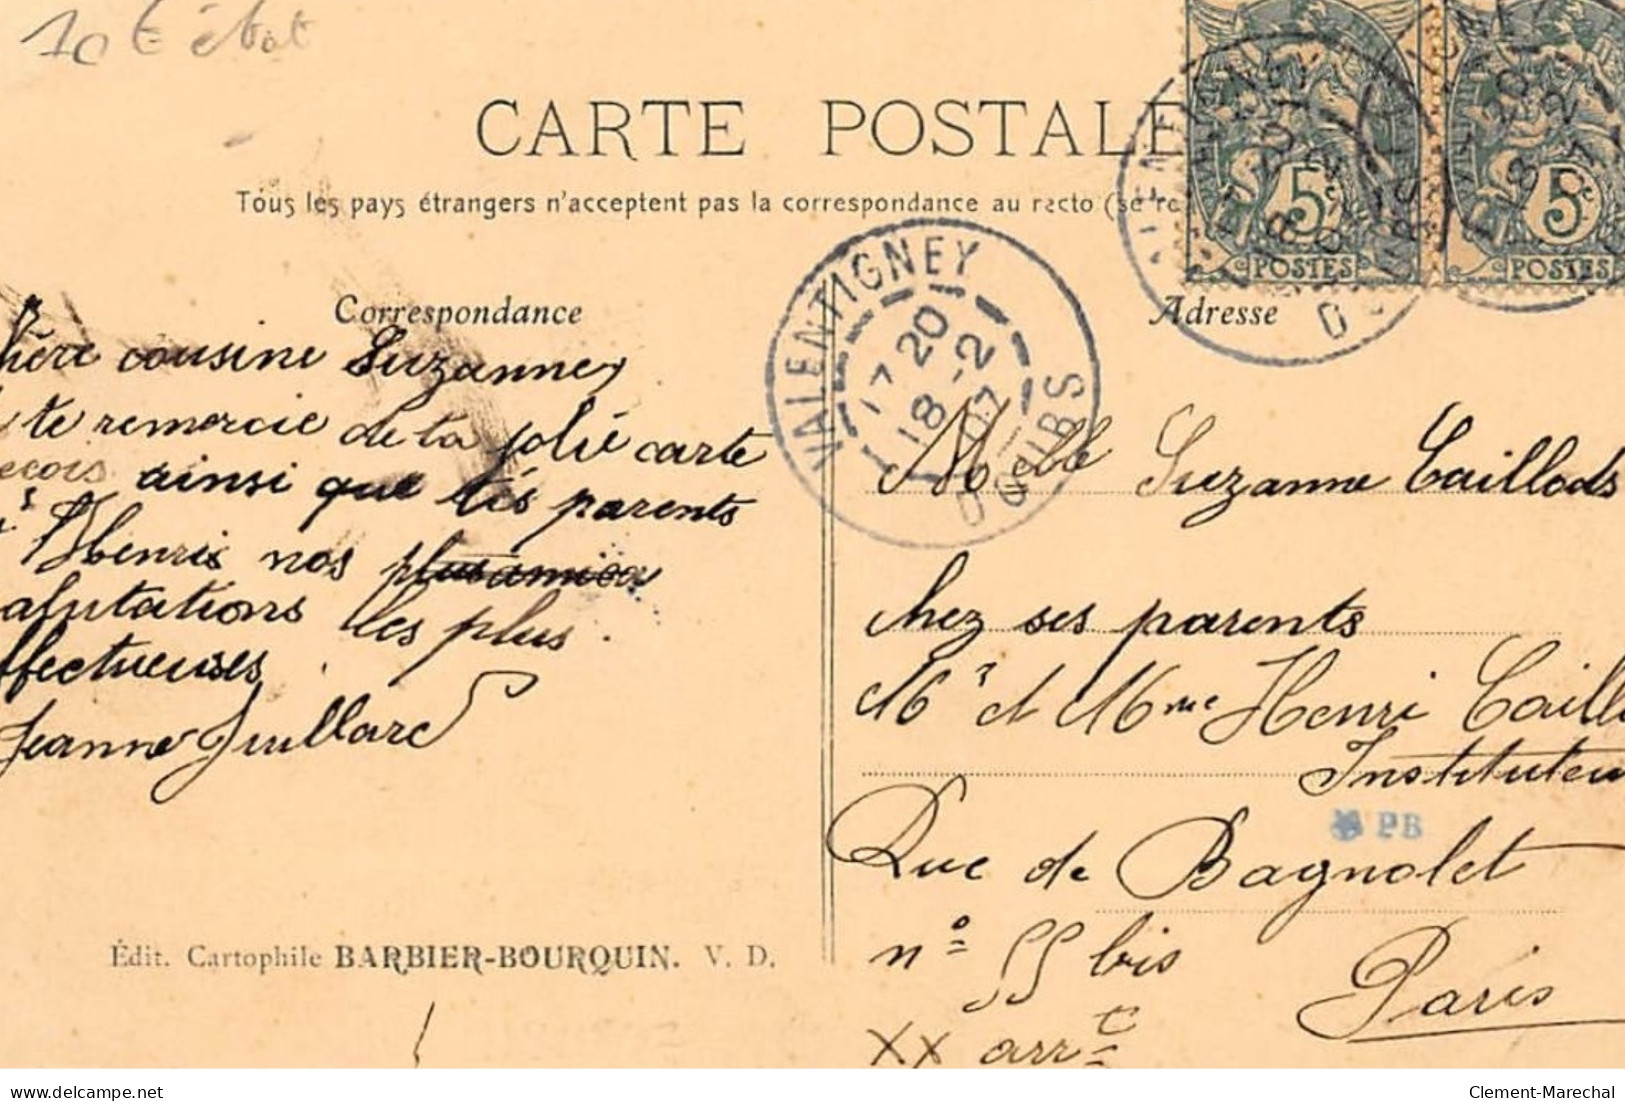 10 € état
CARTE POSTALE
Tous les pays étrangers n'acceptent pas la correspondance au recto (se re
VALENTIGNEY
17 20
18 -2
07
DOUBS
5c
POSTES
5c
POSTES
Correspondance
Adresse
hère cousine Suzanne
te remercie de ta jolie carte
reçois ainsi que tes parents
Henri nos
alutations les plus
ffectueuses
Jeanne Juillard
Melle Suzanne Caillods
chez ses parents
Mr et Mme Henri Caill
Instituteu
PB
Rue de Bagnolet
n° 55 bis
Paris
XX arrt
Édit. Cartophile BARBIER-BOURQUIN. V. D.
delcampe.net
Clement-Marechal